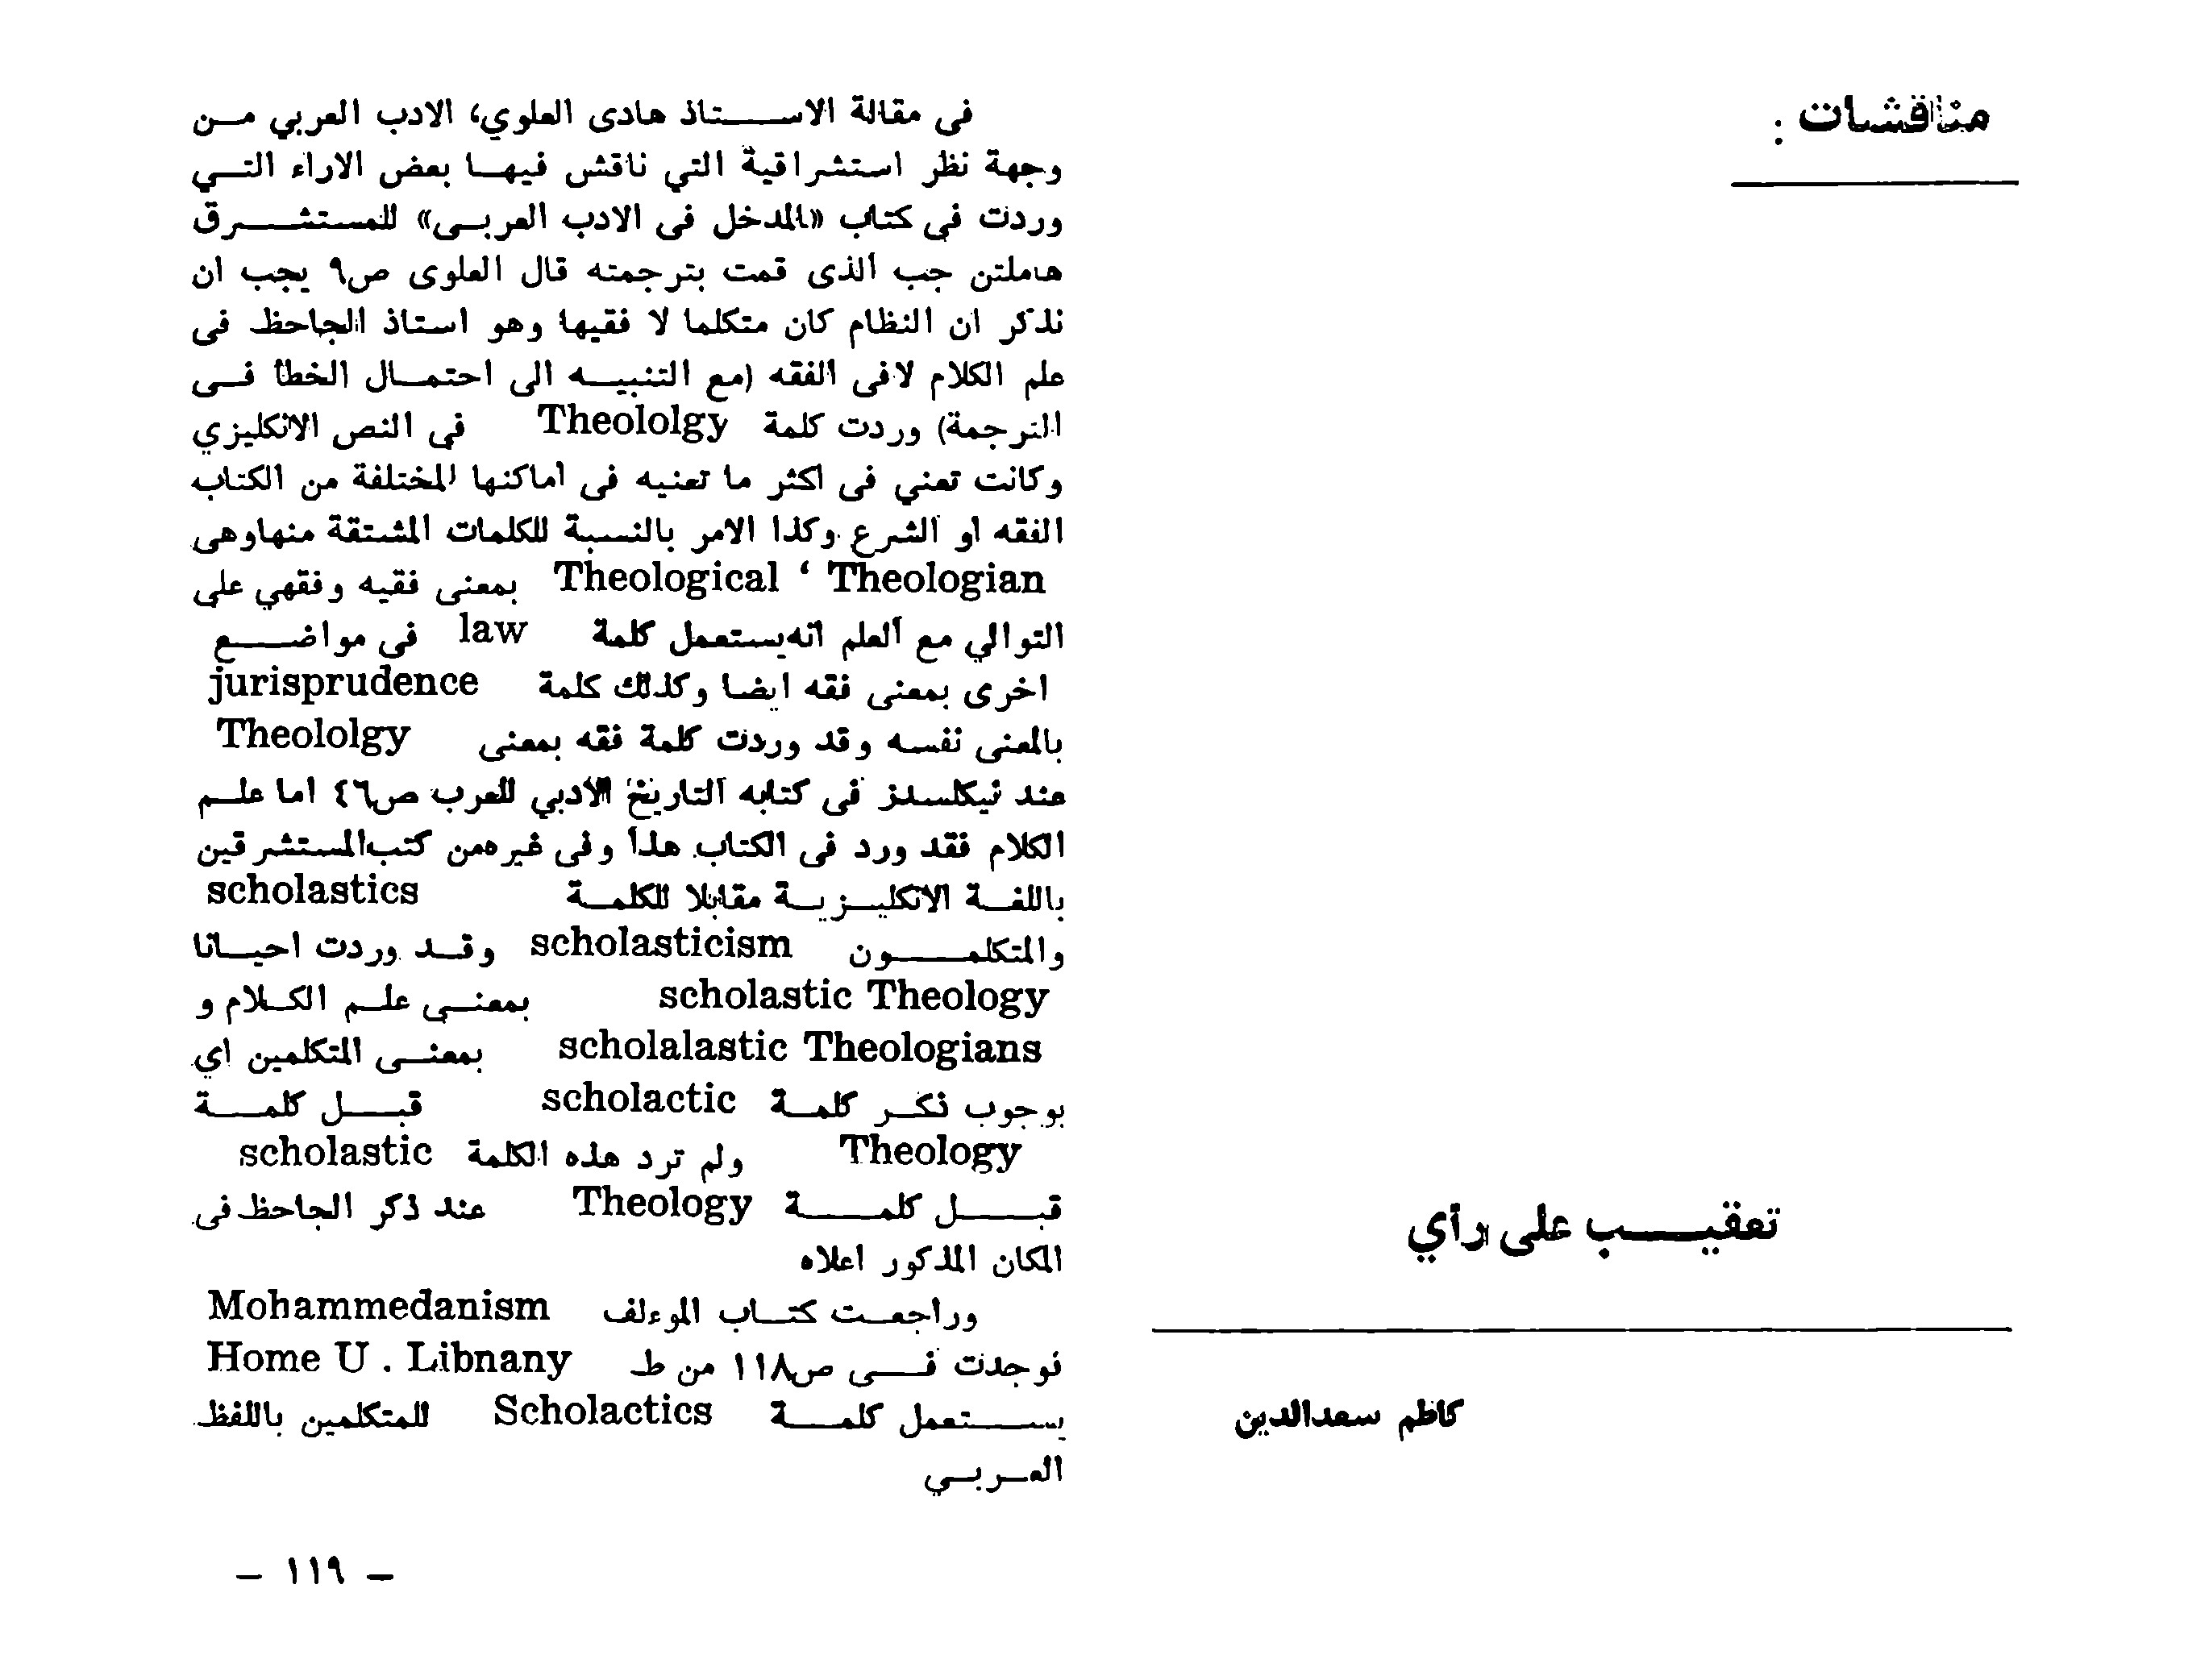 مناقشات :
تعقيب على رأي
كاظم سعدالدين
فى مقالة الاستاذ هادى العلوي، الادب العربي من
وجهة نظر استشراقية التي ناقش فيها بعض الاراء التي
وردت في كتاب «المدخل فى الادب العربى» للمستشرق
هاملتن جب الذى قمت بترجمته قال العلوى ص٩ يجب ان
نذكر ان النظام كان متكلما لا فقيها وهو استاذ الجاحظ فى
علم الكلام لافى الفقه (مع التنبيه الى احتمال الخطأ فى
الترجمة) وردت كلمة Theololgy في النص الانكليزي
وكانت تعني فى اكثر ما تعنيه فى اماكنها المختلفة من الكتاب
الفقه او الشرع وكذا الامر بالنسبة للكلمات المشتقة منهاوهى
Theological ‘ Theologian بمعنى فقيه وفقهي على
التوالي مع العلم انه يستعمل كلمة law فى مواضع
اخرى بمعنى فقه ايضا وكذلك كلمة jurisprudence
بالمعنى نفسه وقد وردت كلمة فقه بمعنى Theololgy
عند نيكلسدز فى كتابه التاريخ الأدبي للعرب ص٤٦ اما علم
الكلام فقد ورد فى الكتاب هذا وفى غيره من كتب المستشرقين
باللغة الانكليزية مقابلا للكلمة scholastics
والمتكلمون scholasticism وقد وردت احيانا
scholastic Theology بمعنى علم الكلام و
scholalastic Theologians بمعنى المتكلمين اي
بوجوب ذكر كلمة scholactic قبل كلمة
Theology ولم ترد هذه الكلمة scholastic
قبل كلمة Theology عند ذكر الجاحظ فى
المكان المذكور اعلاه
وراجعت كتاب الموءلف Mohammedanism
فوجدت فى ص١١٨ من ط Home U . Libnany
يستعمل كلمة Scholactics للمتكلمين باللفظ
العربي
– ١١٩ –